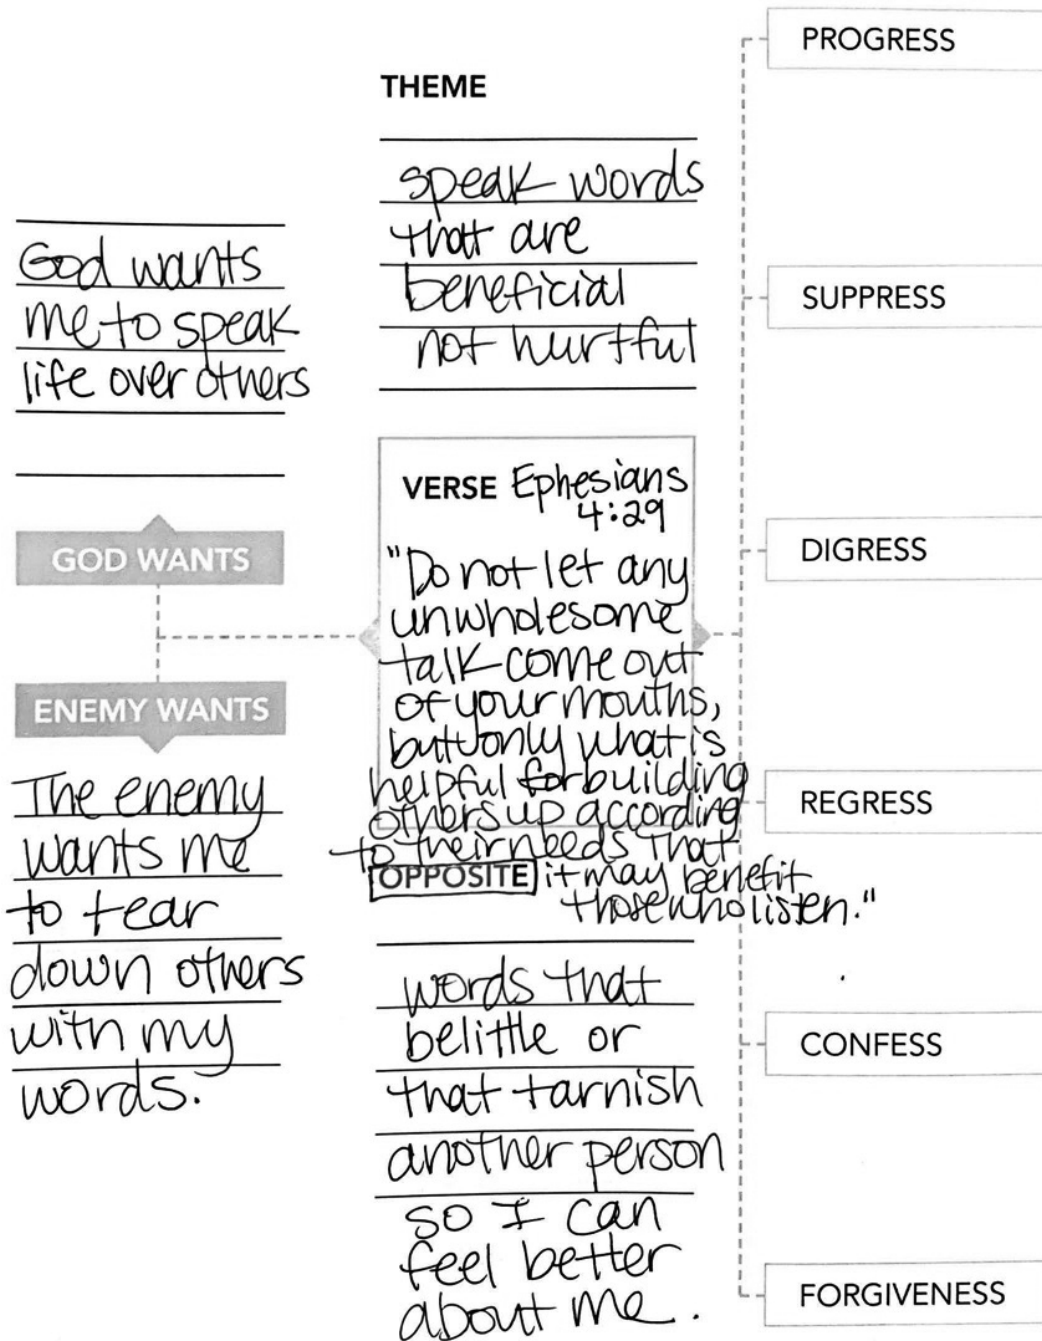 God wants
me to speak
life over others
GOD WANTS
ENEMY WANTS
The enemy
wants me
to tear
down others
with my
words.
THEME
speak words
that are
beneficial
not hurtful
VERSE Ephesians
4:29
"Do not let any
unwholesome
talk come out
of your mouths,
but only what is
helpful for building
others up according
to their needs that
it may benefit
those who listen."
OPPOSITE
words that
belittle or
that tarnish
another person
so I can
feel better
about me.
PROGRESS
SUPPRESS
DIGRESS
REGRESS
CONFESS
FORGIVENESS